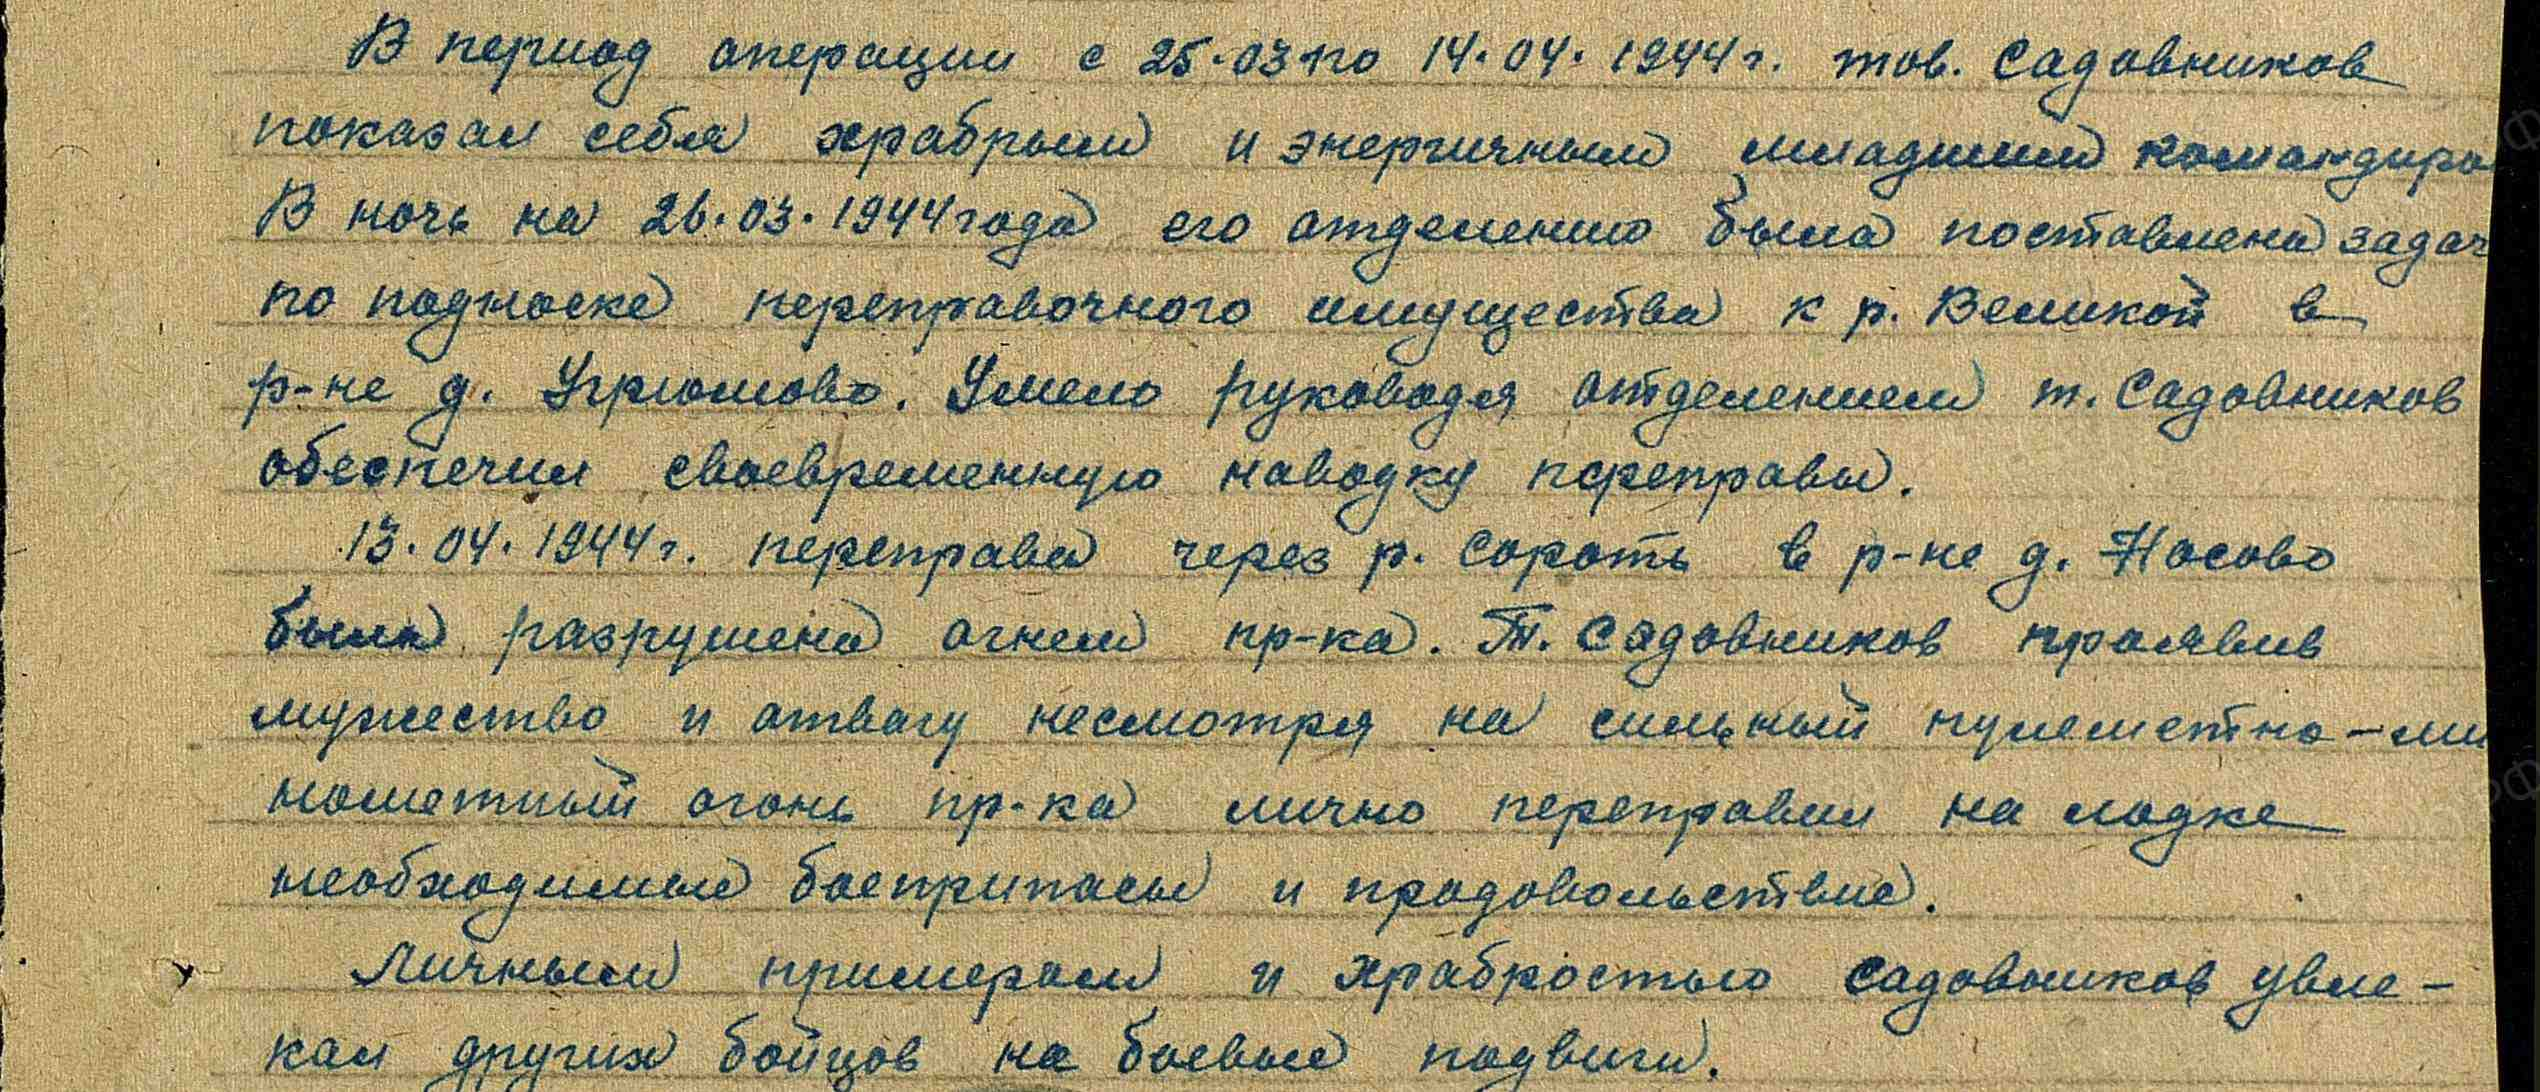 В период операции с 25.03 по 14.04.1944г. тов. Садовников
показал себя храбрым и энергичным младшим командиро
В ночь на 26.03.1944 года его отделению была поставлена задач
по подноске переправочного имущества к р. Великой в
р-не д. Угрюмово. Умело руководя отделением т. Садовников
обеспечил своевременную наводку переправы.
13.04.1944г. переправа через р. Сороть в р-не д. Носово
была разрушена огнем пр-ка. Т. Садовников проявив
мужество и отвагу несмотря на сильный пулеметно-ми
нометный огонь пр-ка лично переправил на лодке
необходимые боеприпасы и продовольствие.
Личным примером и храбростью Садовников увле-
кал других бойцов на боевые подвиги.